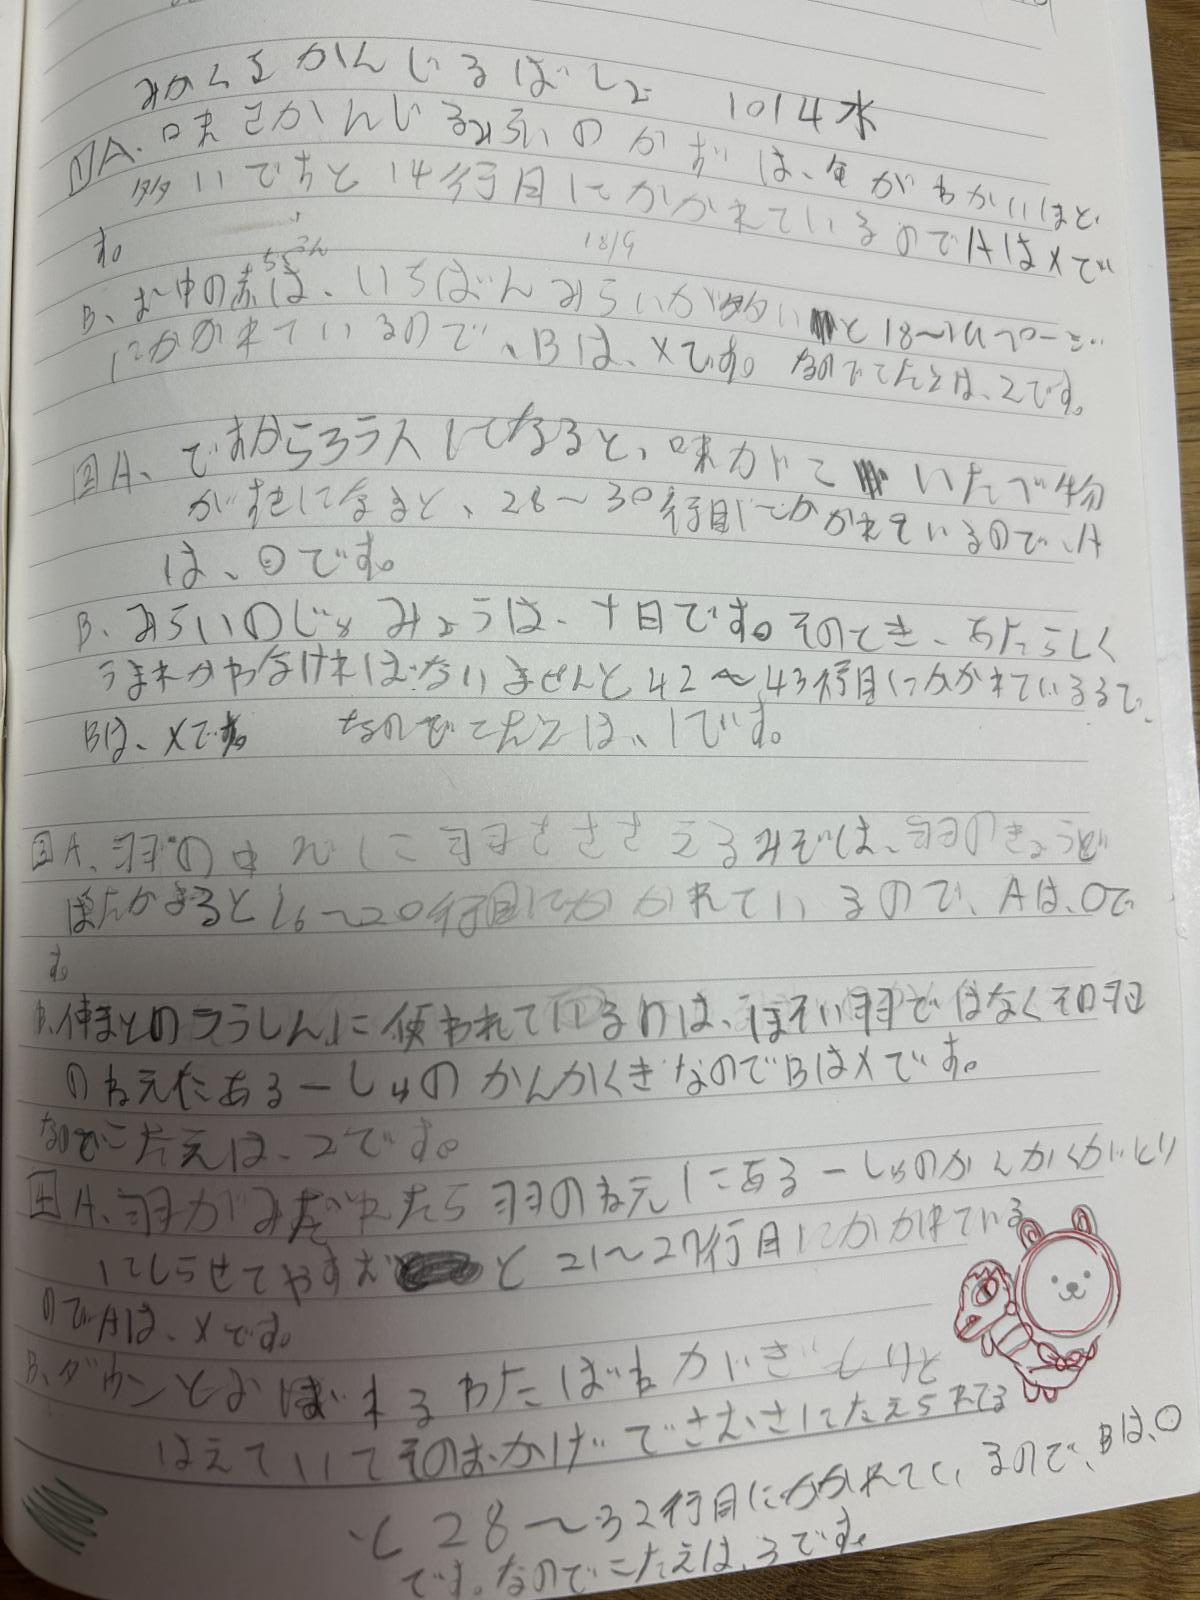 みかくをかんじるばしょ 10/4 水
1 A. 味をかんじるみらいのかずは、年がわかいほど
多いですと14行目にかかれているのでAはxで
す。
18/9
B、お中の赤ちゃんは、いちばんみらいが多いと18〜
にかかれているので、Bは、xです。なのでこたえは、2です。
2 A、でおからろうスしてなると、味がこいたべ物
がすきになると、28〜30行目にかかれているので、A
は、〇です。
B、みらいのじゅみょうは、十日です。そのとき、あたらしく
うまれかわなければないませんと42〜43行目にかかれているるで、
Bは、xです。なのでこたえは、1です。
3 A、羽の中でに羽をささえるみぞは、羽のきょうど
ほたかまると16〜20行目にかかれているので、Aは、〇で
す。
B、体まとのうらしんに使われているのは、ほそい羽ではなくその羽
のねえたある一しゅのかんかくきなのでBはxです。
なのでこたえは、2です。
4 A、羽がみだれたら羽のねえにある一しゅのかんかくがとり
にしらせてやすおと21〜27行目にかかれている
のでAは、xです。
B、ダウンとよばれるわたばねがぎっしりと
はえていてそのおかげでさむさにたえられてる
と28〜32行目にかかれているので、Bは、〇
です。なのでこたえは、3です。